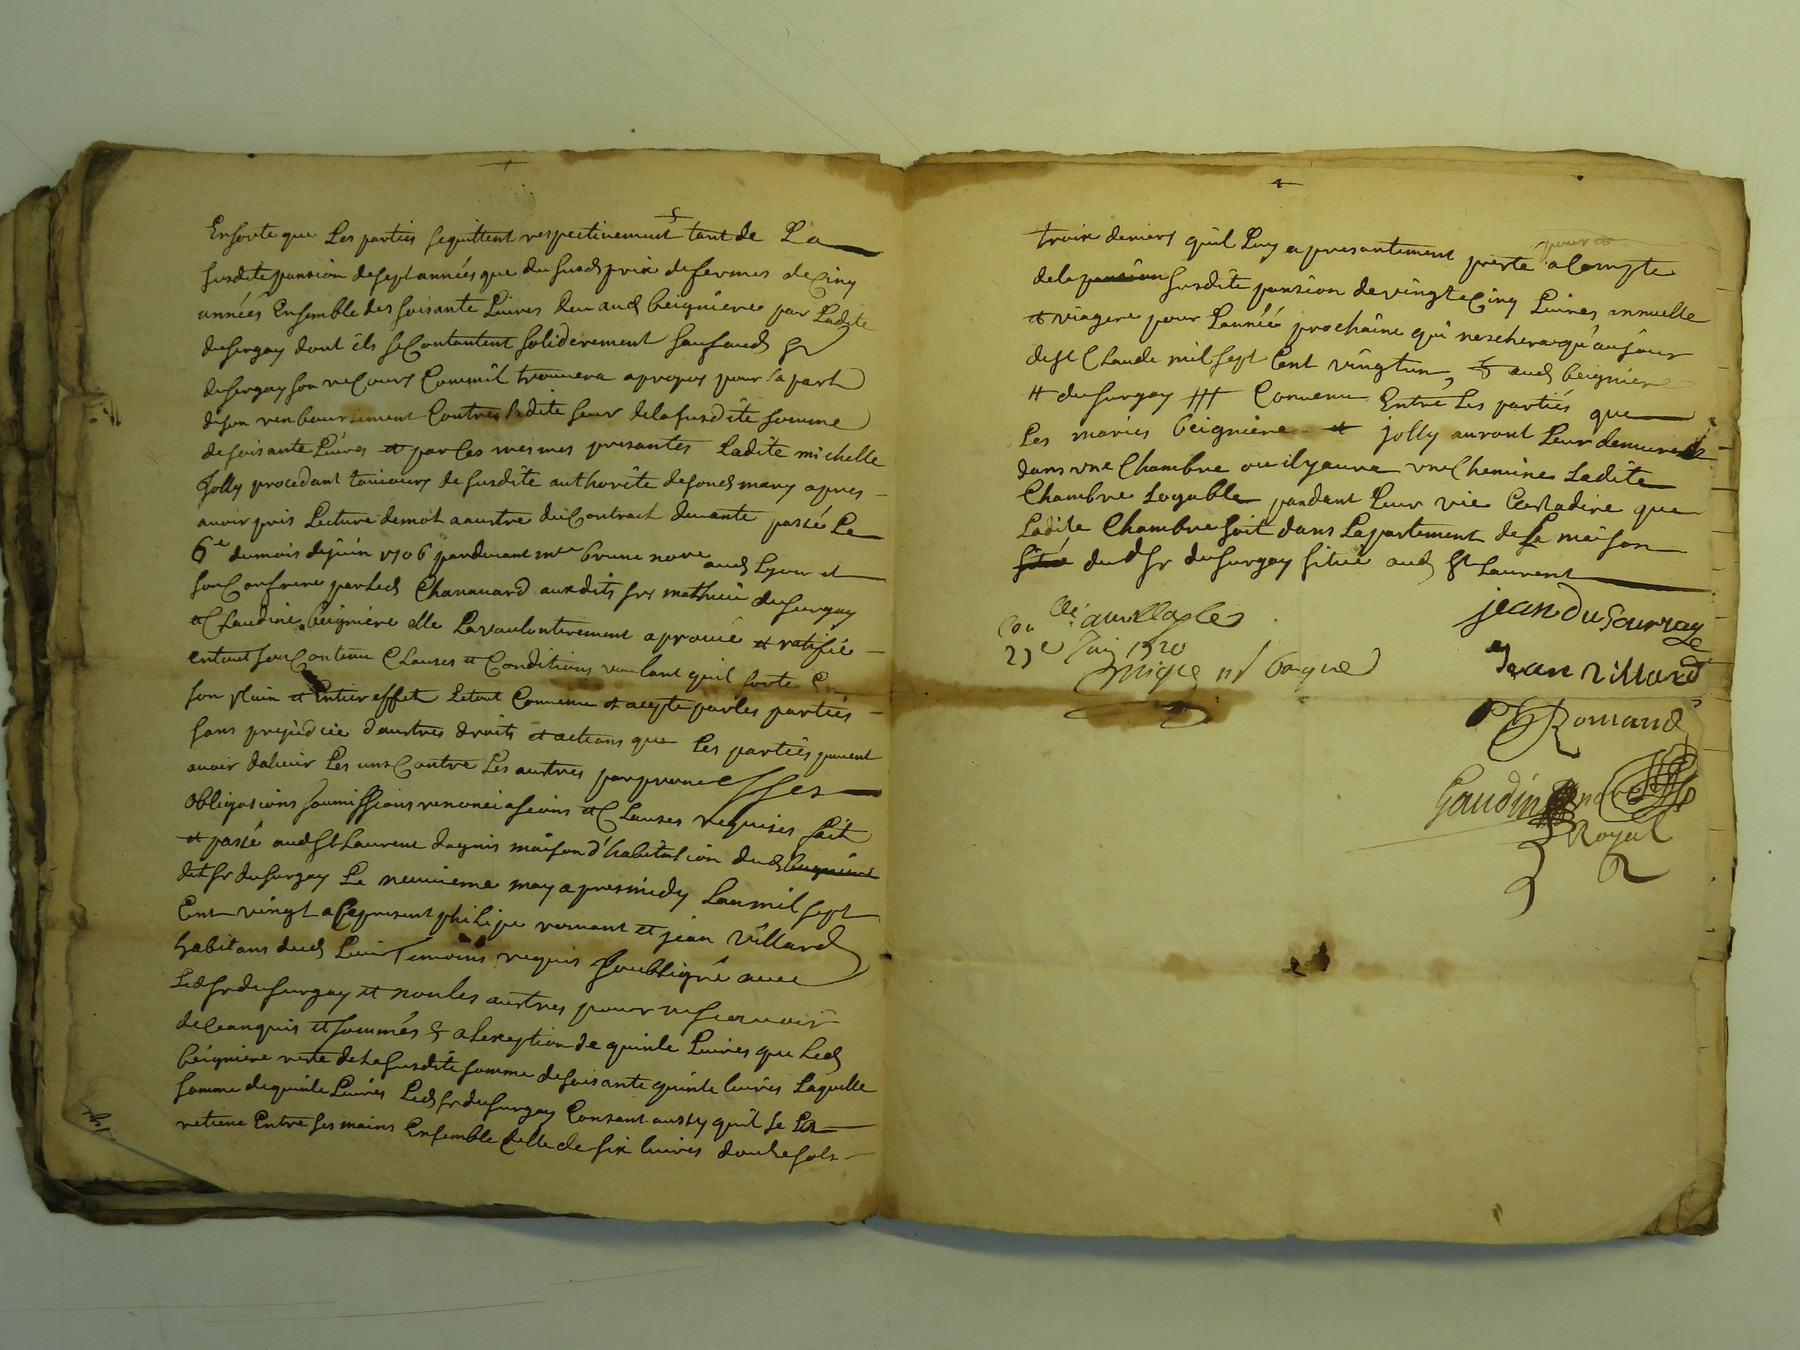 Ensorte que Les parties sequittent respectivement tant de La
susdite pansion de sept années que du susd prix de fermes de Cinq
années Ensemble des soisante Livres deu aud beigniere par Ladite
dusurgay dont ils se Contantent soliderement sauf aud sr
dusurgay son recours Comm'il trouvera apropos pour sa part
de son renboursement Contre Ladite seur de la susdite somme
de soisante Livres et par Ces mesmes presantes Ladite michelle
Jolly procedant toujours de susdite authorité de sond mary apres
avoir pris Lecture de mot a austre du Contract de vante passé Le
6e du mois de juin 1706 pardevant me brune nore aud Lyon et
son Confrere par Led Chanavard ausdits srs mathieu dusurgay
et Claudine beigniere elle La voulontierement aprouvé et ratifié
entout son Contenu Clauses et Conditions voulant quil sorte En
son plain et Entier effet Letout Convenu et acepté par les parties
sans prejudice d'austres droits et actions que Les parties peuvent
avoir dalieur Les uns Contre Les austres par promesses
obligasions soumissions renonciasions et Clauses requises fait
et passé aud St Laurent dagnis maison d'habitasion dud beigniere
dit sr dusurgay Le neuvieme may apresmidy Lan mil sept
Cent vingt a Ce present philipe romant et jean villard
habitans dud Lieu Temoins requis soubsigné avec
Led sr dusurgay et non les austres pour ne scavoir
de Ceanquis et sommés & a Lexeption de quinle Livres que Led
beigniere reste de La susdite somme de soisante quinle livres Laquelle
somme de quinle Livres Led sr dusurgay Consant aussy qu'il se La
retiene Entre ses mains Ensemble Celle de six livres doulle sols
troix deniers qu'il Luy a presantement presté a Compte
de la pansion susdite pansion de vingt Cinq Livres annuelle
et viagere pour Lannéé prochaine qui neschera qu'au jour
de st Claude mil sept Cent vingt un, & aud beigniere
# dusurgay ### Convenu Entre Les parties que
Les maries beigniere et Jolly auront Leur demeure
dans une Chambre ou il y aura une Chemineé Ladite
Chambre Logable pandant Leur vie Cestadire que
Ladite Chambre soit dans Lapartement de La maison
sitté dud sr dusurgay situé aud St Laurent
jean duSourgay
Jean Villard
Ph Romand
Gaudin
Royal